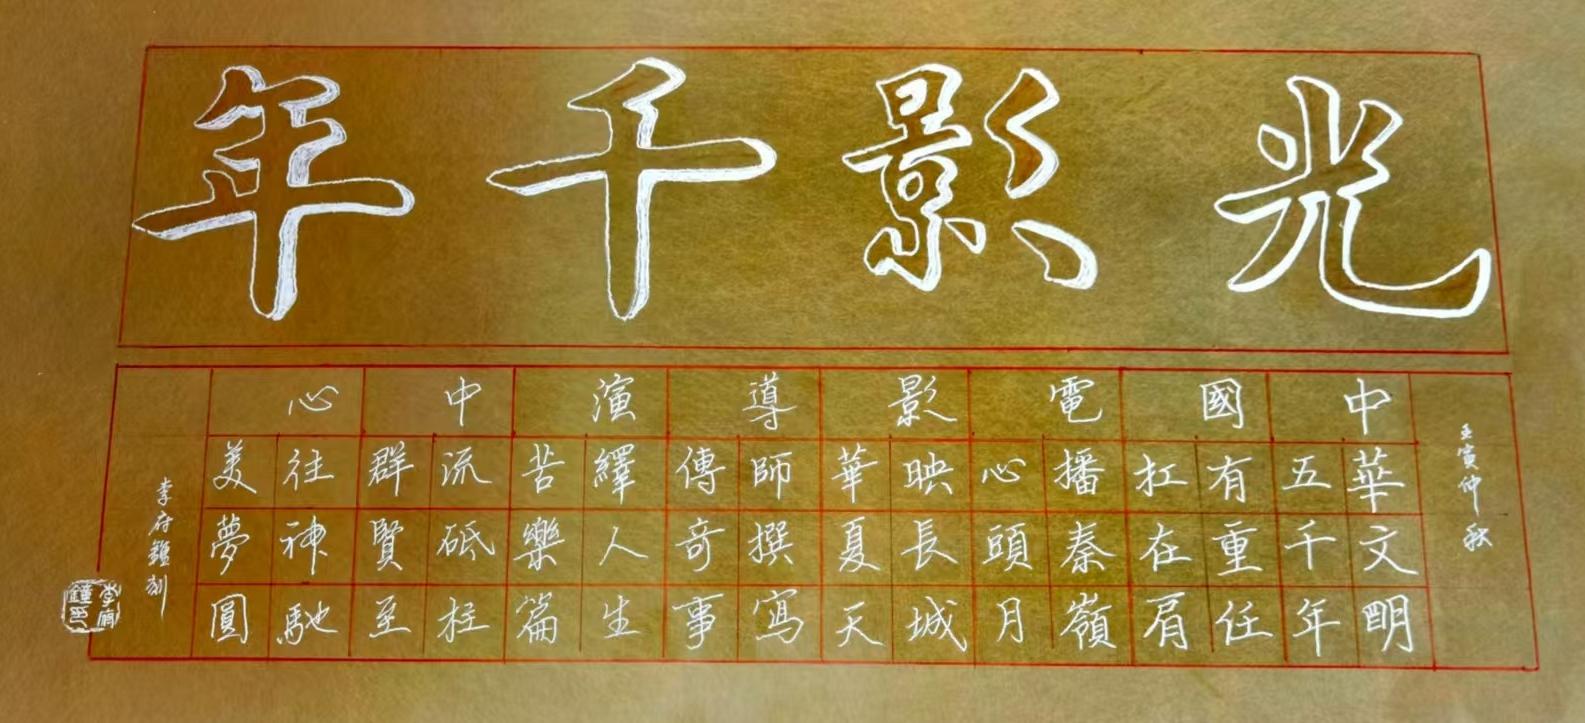 光影千年
壬寅仲秋
中華文明五千年
國有重任扛在肩
電播秦嶺心頭月
影映長城華夏天
導師撰寫傳奇事
演繹人生苦樂篇
中流砥柱群賢至
心往神馳美夢圓
李府鐘刻
李府鐘印